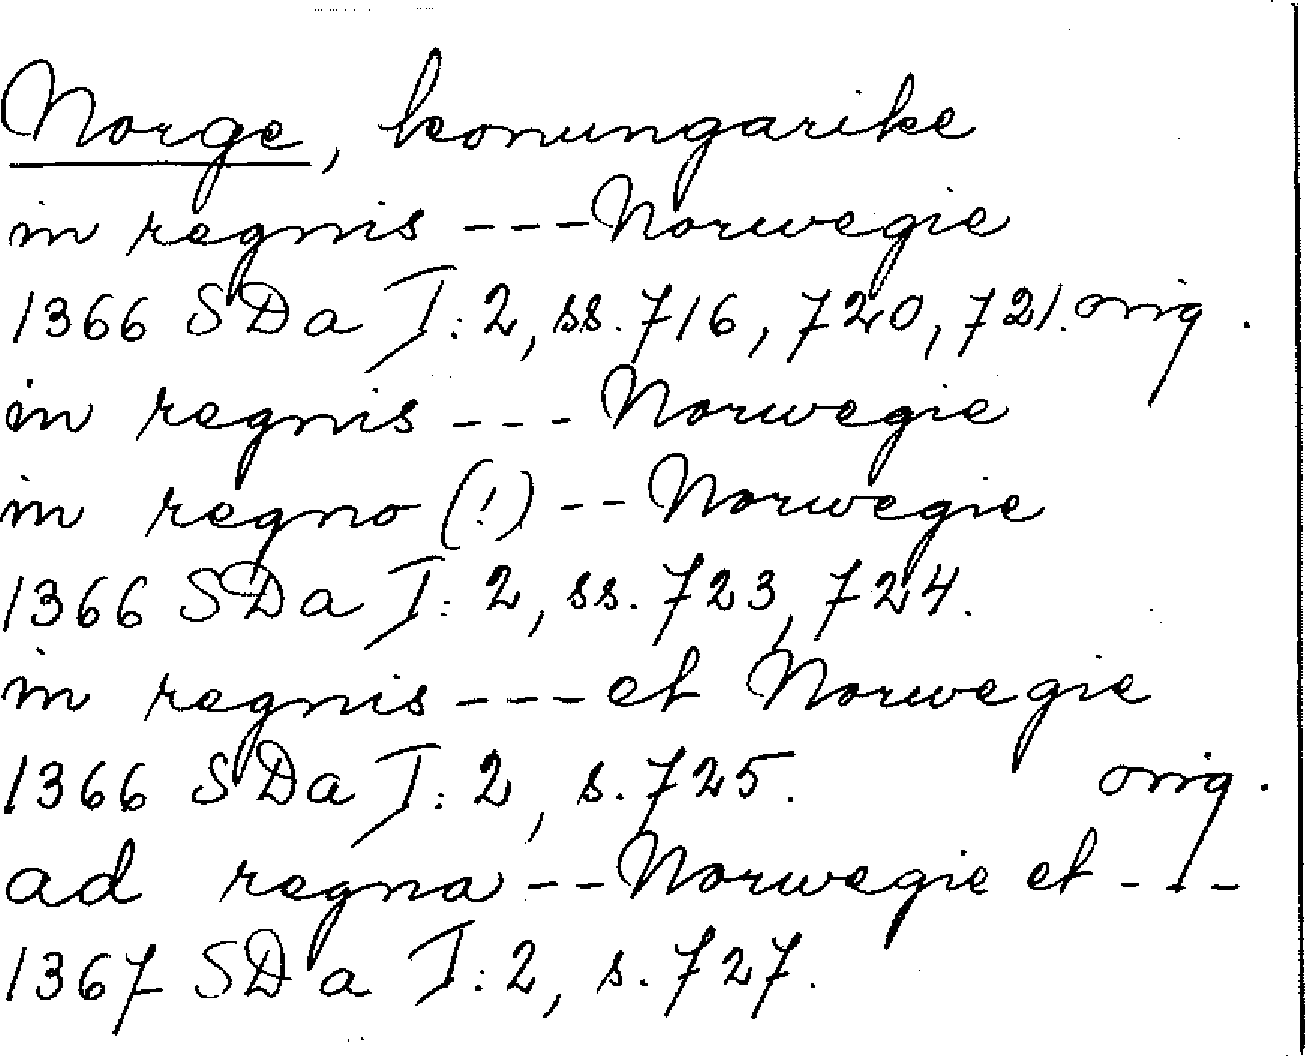 Norge, konungarike
in regnis --- Norwegie
1366 SDa I:2, ss. 716, 720, 721. orig.
in regnis --- Norwegie
in regno (!) -- Norwegie
1366 SDa I:2, ss. 723, 724.
in regnis --- et Norwegie
1366 SDa I:2, s. 725. orig.
ad regna -- Norwegie et ---
1367 SDa I:2, s. 727.